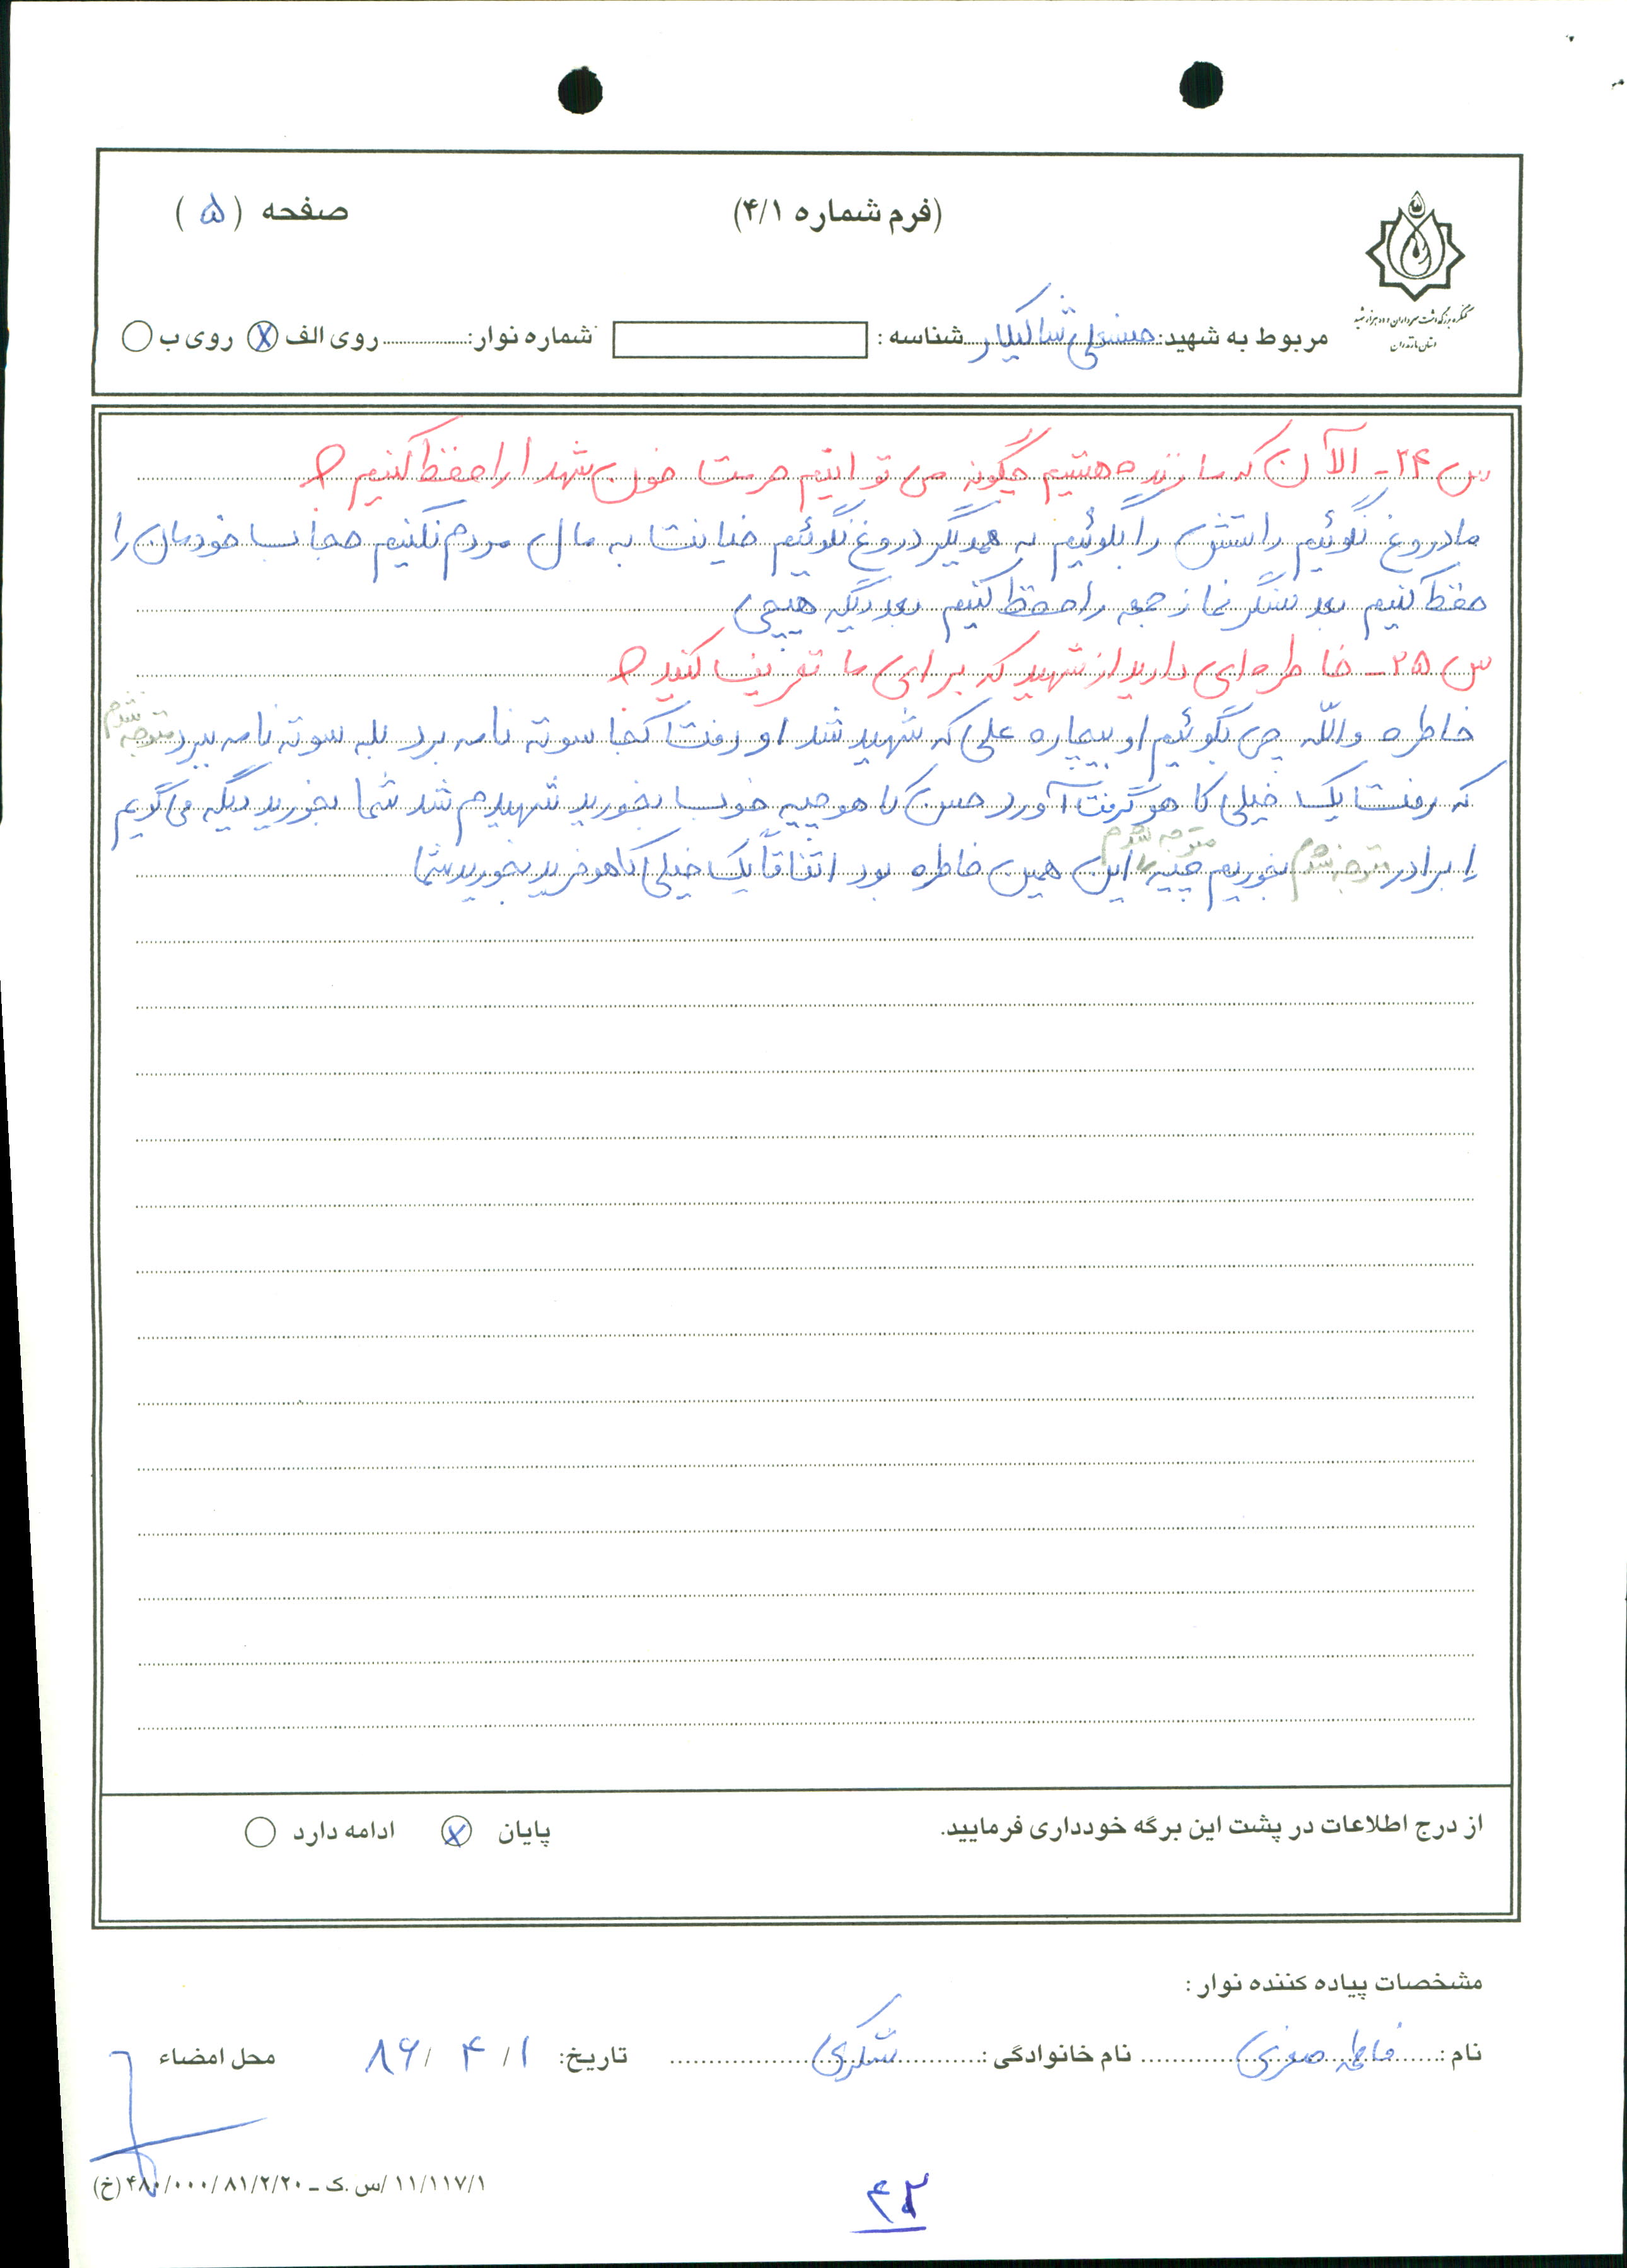 (فرم شماره ۴/۱)
صفحه (۵)
کنگره بزرگداشت سرداران و ده هزار شهید
استان مازندران
مربوط به شهید: حسنعلی شاکیلار شناسه: شماره نوار: روی الف ☒ روی ب ○
س ۲۴- الآن که ما زنده هستیم چگونه می توانیم حرمت خون شهدا را حفظ کنیم؟
ما دروغ نگوئیم راستش را بگوئیم به همدیگر دروغ نگوئیم خیانت به مال مردم نکنیم حجاب خودمان را
حفظ کنیم بعد سنگر نماز جمعه را حفظ کنیم بعد دیگه هیچی
س ۲۵- خاطره ای دارید از شهید که برای ما تعریف کنید؟
خاطره والله چی بگوئیم او بیچاره علی که شهید شد او رفت کجا سوته نامه برد بله سوته نامه ببرد متوجه نشدم
که رفت یک خیلی کاهو گرفت آورد حسن کاهو چیه خوب بخورید شهید هم شد شما بخورید دیگه می گویم
اِ برادر متوجه نشدم بخوریم چیه متوجه نشدم این همین خاطره بود اتفاقاً یک خیلی کاهو خرید بخورید شما
از درج اطلاعات در پشت این برگه خودداری فرمایید.
پایان ☒ ادامه دارد ○
مشخصات پیاده کننده نوار:
نام: فاطمه صغری نام خانوادگی: شکری تاریخ: ۸۶/۴/۱ محل امضاء
۱۱/۱۱۷/۱/س.ک ـ ۴۸۰/۰۰۰/۸۱/۲/۲۰ (خ)
۴۲